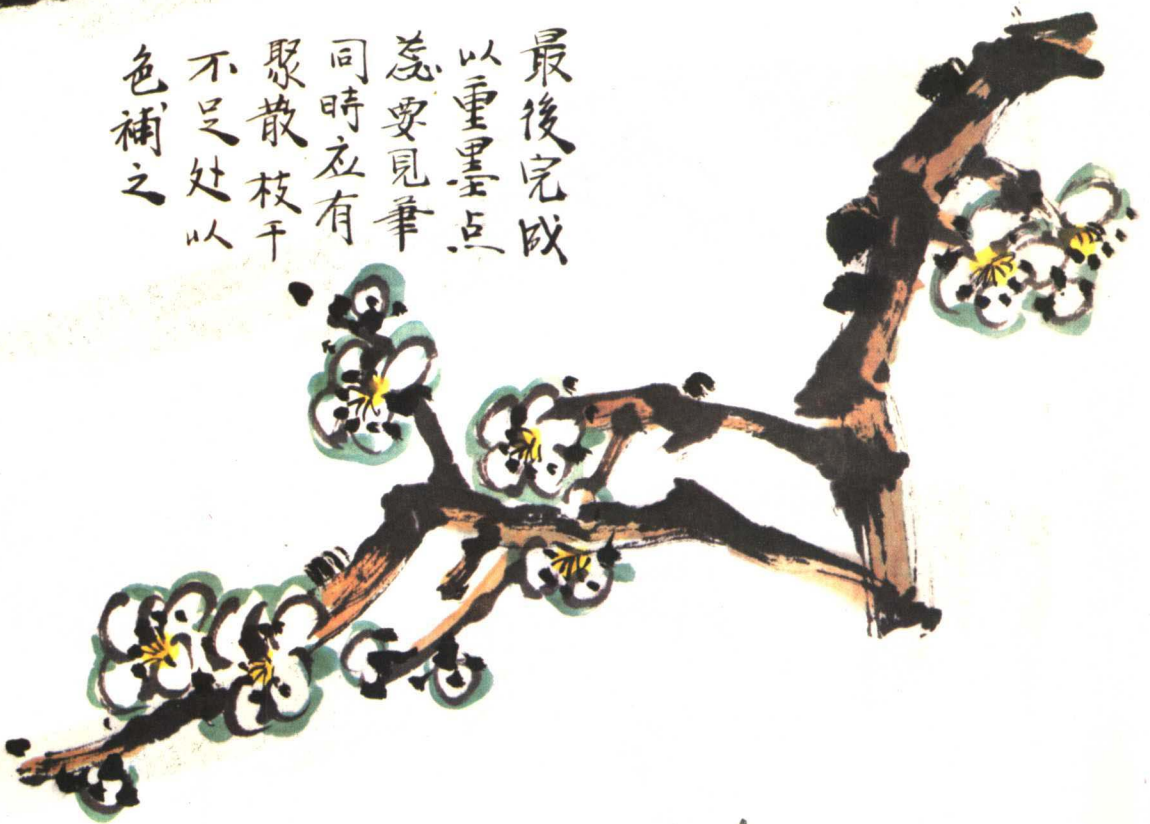 最後完成
以重墨点
蕊要見筆
同時应有
聚散枝干
不足处以
色補之